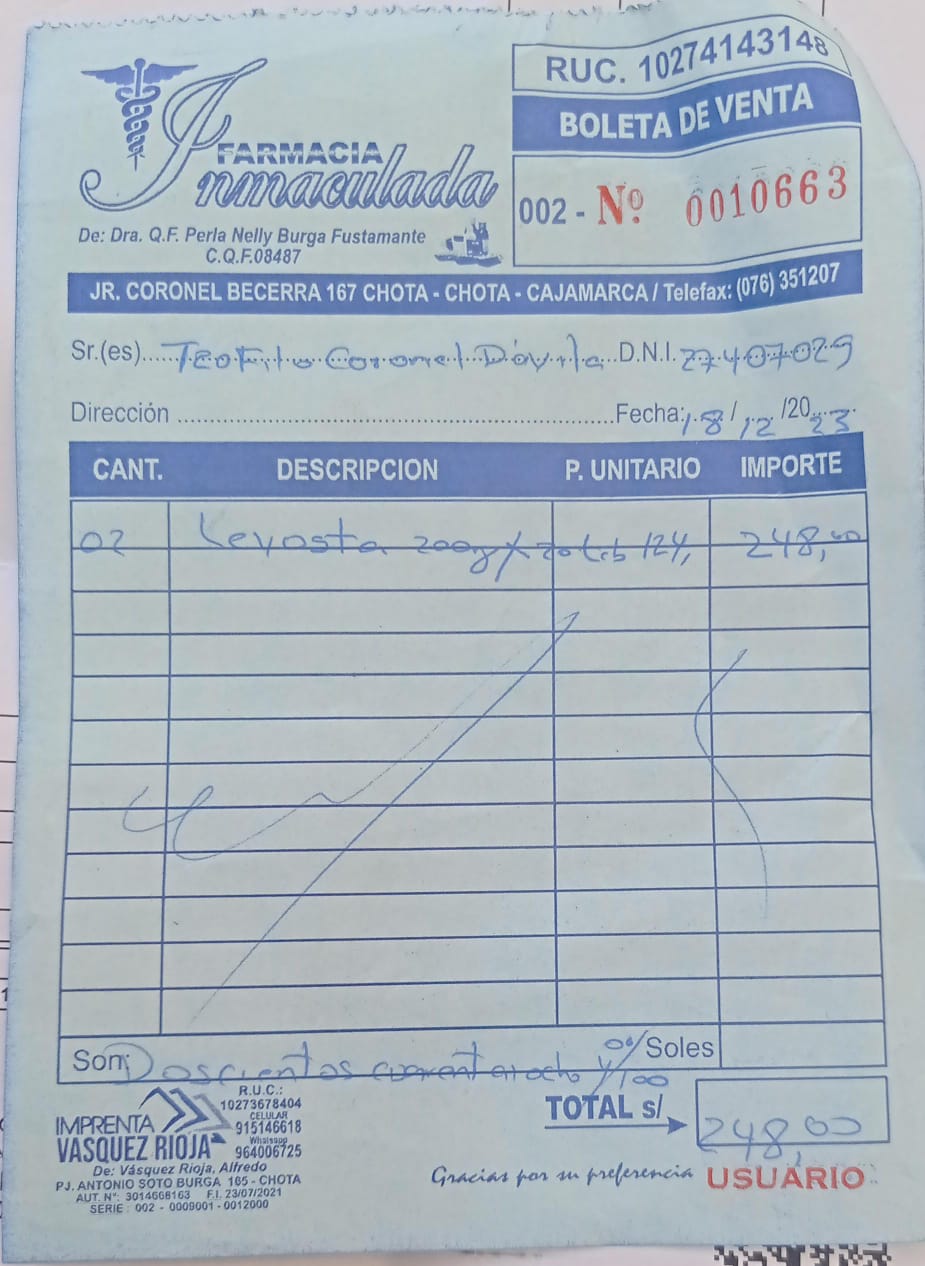 RUC. 10274143148
BOLETA DE VENTA
002 - Nº. 0010663
FARMACIA
Inmaculada
De: Dra. Q.F. Perla Nelly Burga Fustamante
C.Q.F.08487
JR. CORONEL BECERRA 167 CHOTA - CHOTA - CAJAMARCA / Telefax: (076) 351207
Sr.(es)..... Teofilo Coronel Dávila ...D.N.I. 27407029
Dirección ..........Fecha: 18 / 12 /20 23
CANT. DESCRIPCION P. UNITARIO IMPORTE
02 Levosta 200mg x 20 tab 124, 248,00
Son: Doscientos cuarentaiocho y 00/100 Soles
TOTAL s/ 248,00
IMPRENTA
VASQUEZ RIOJA
R.U.C.:
10273678404
CELULAR
915146618
Whatsapp
964006725
De: Vásquez Rioja, Alfredo
PJ. ANTONIO SOTO BURGA 165 - CHOTA
AUT. Nº: 3014668163 F.I. 23/07/2021
SERIE : 002 - 0009001 - 0012000
Gracias por su preferencia USUARIO